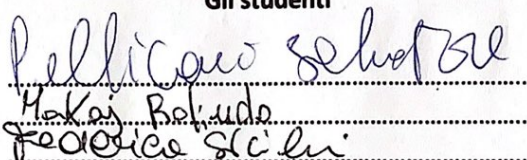 Gli studenti
Pellicanò Salvatore
Makaj Bolindo
Federica Sicilni